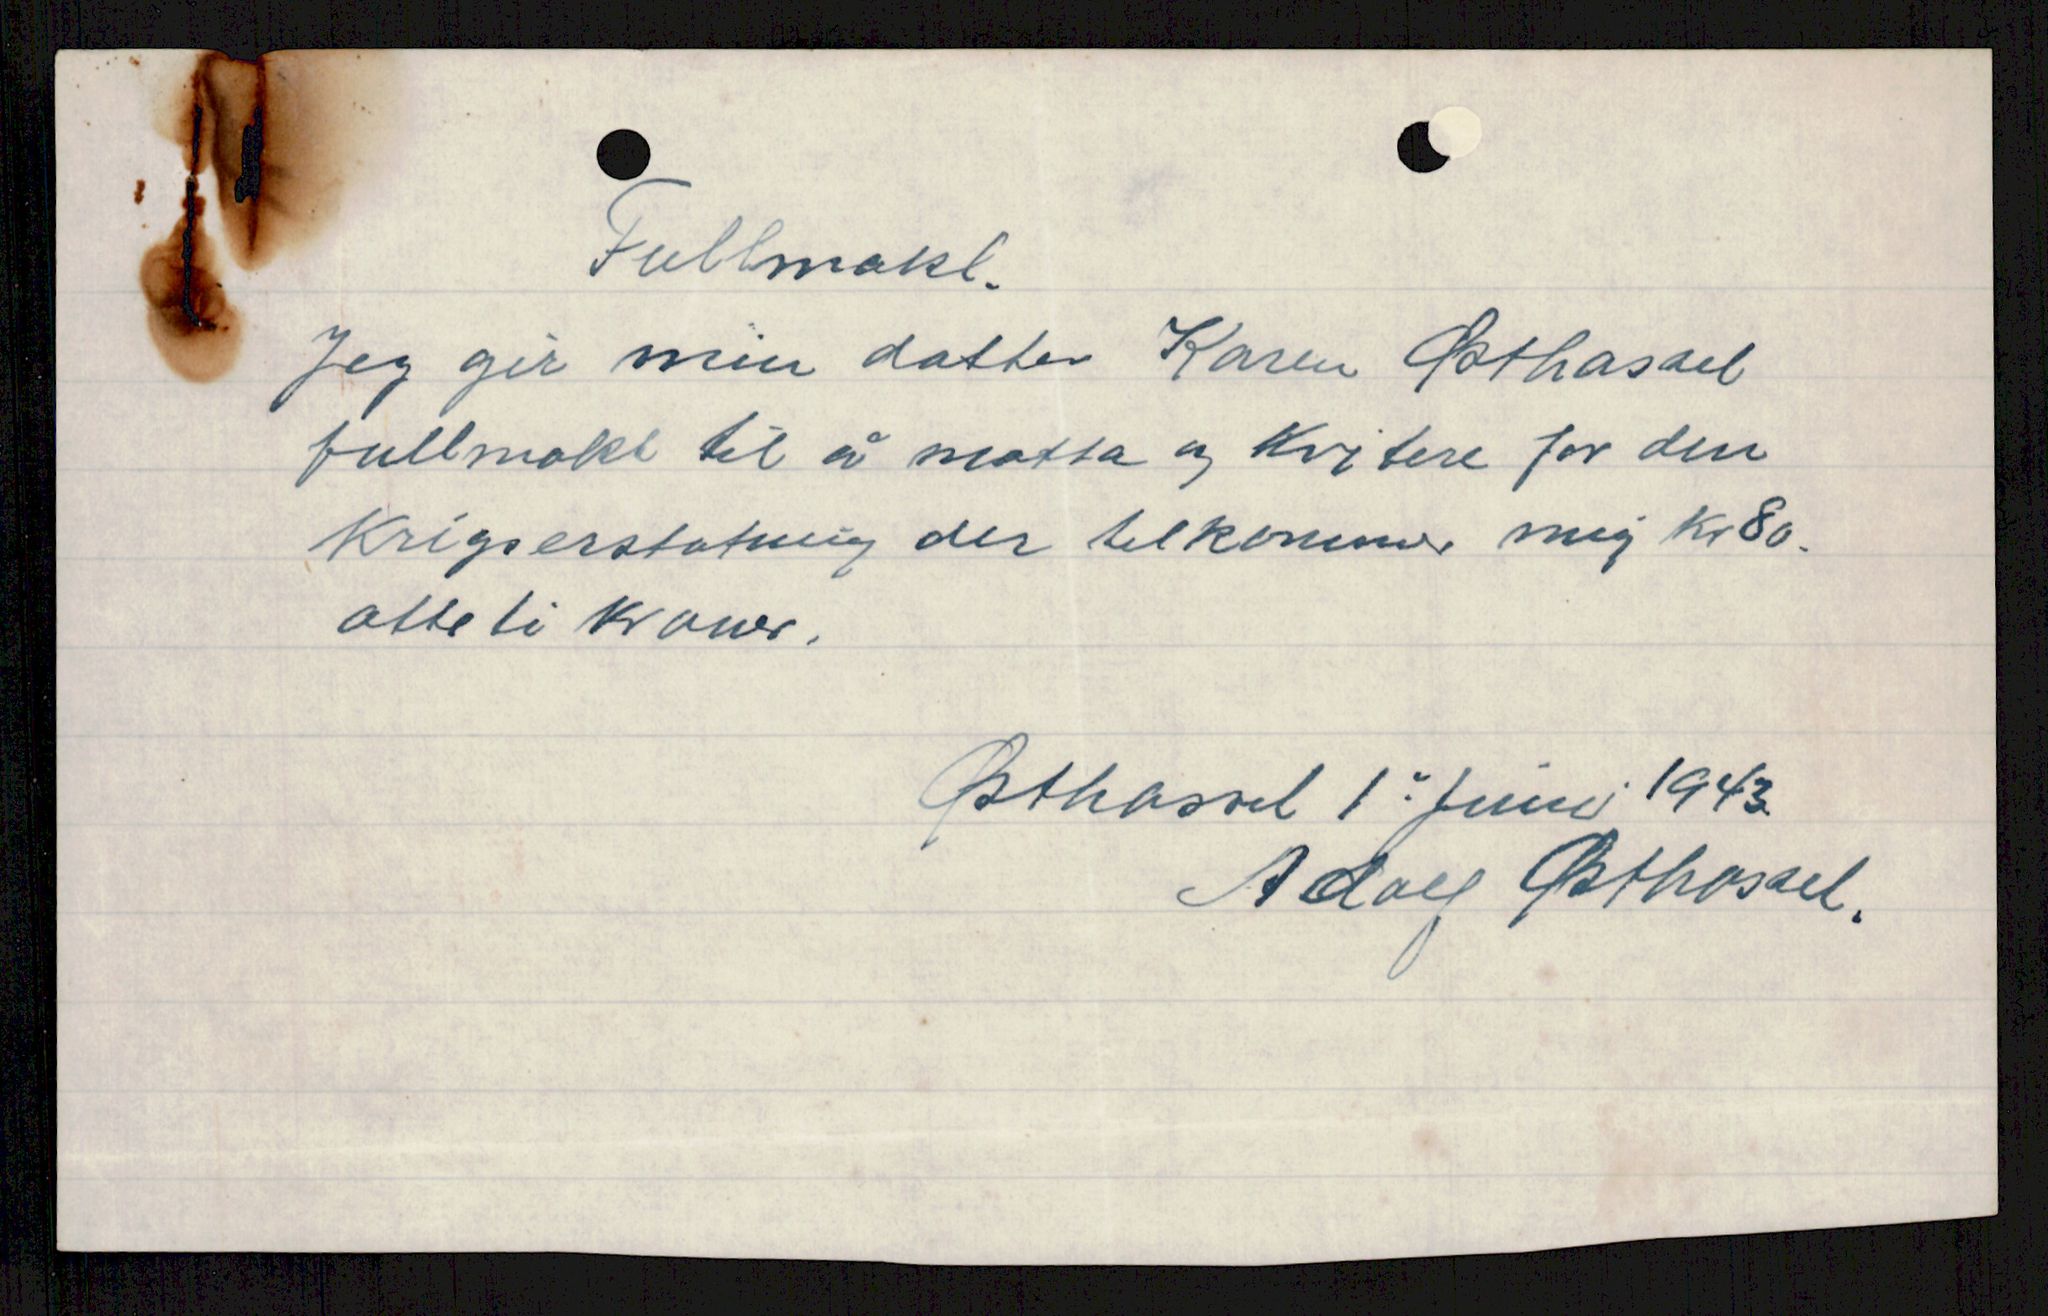 Fullmakt.
Jeg gir min datter Karen Østhassel
fullmakt til å motta og kvitere for den
Krigserstatning der tilkommer mig kr 80.
otteti kroner.
Østhassel 1. juni 1943
Adolf Østhassel.